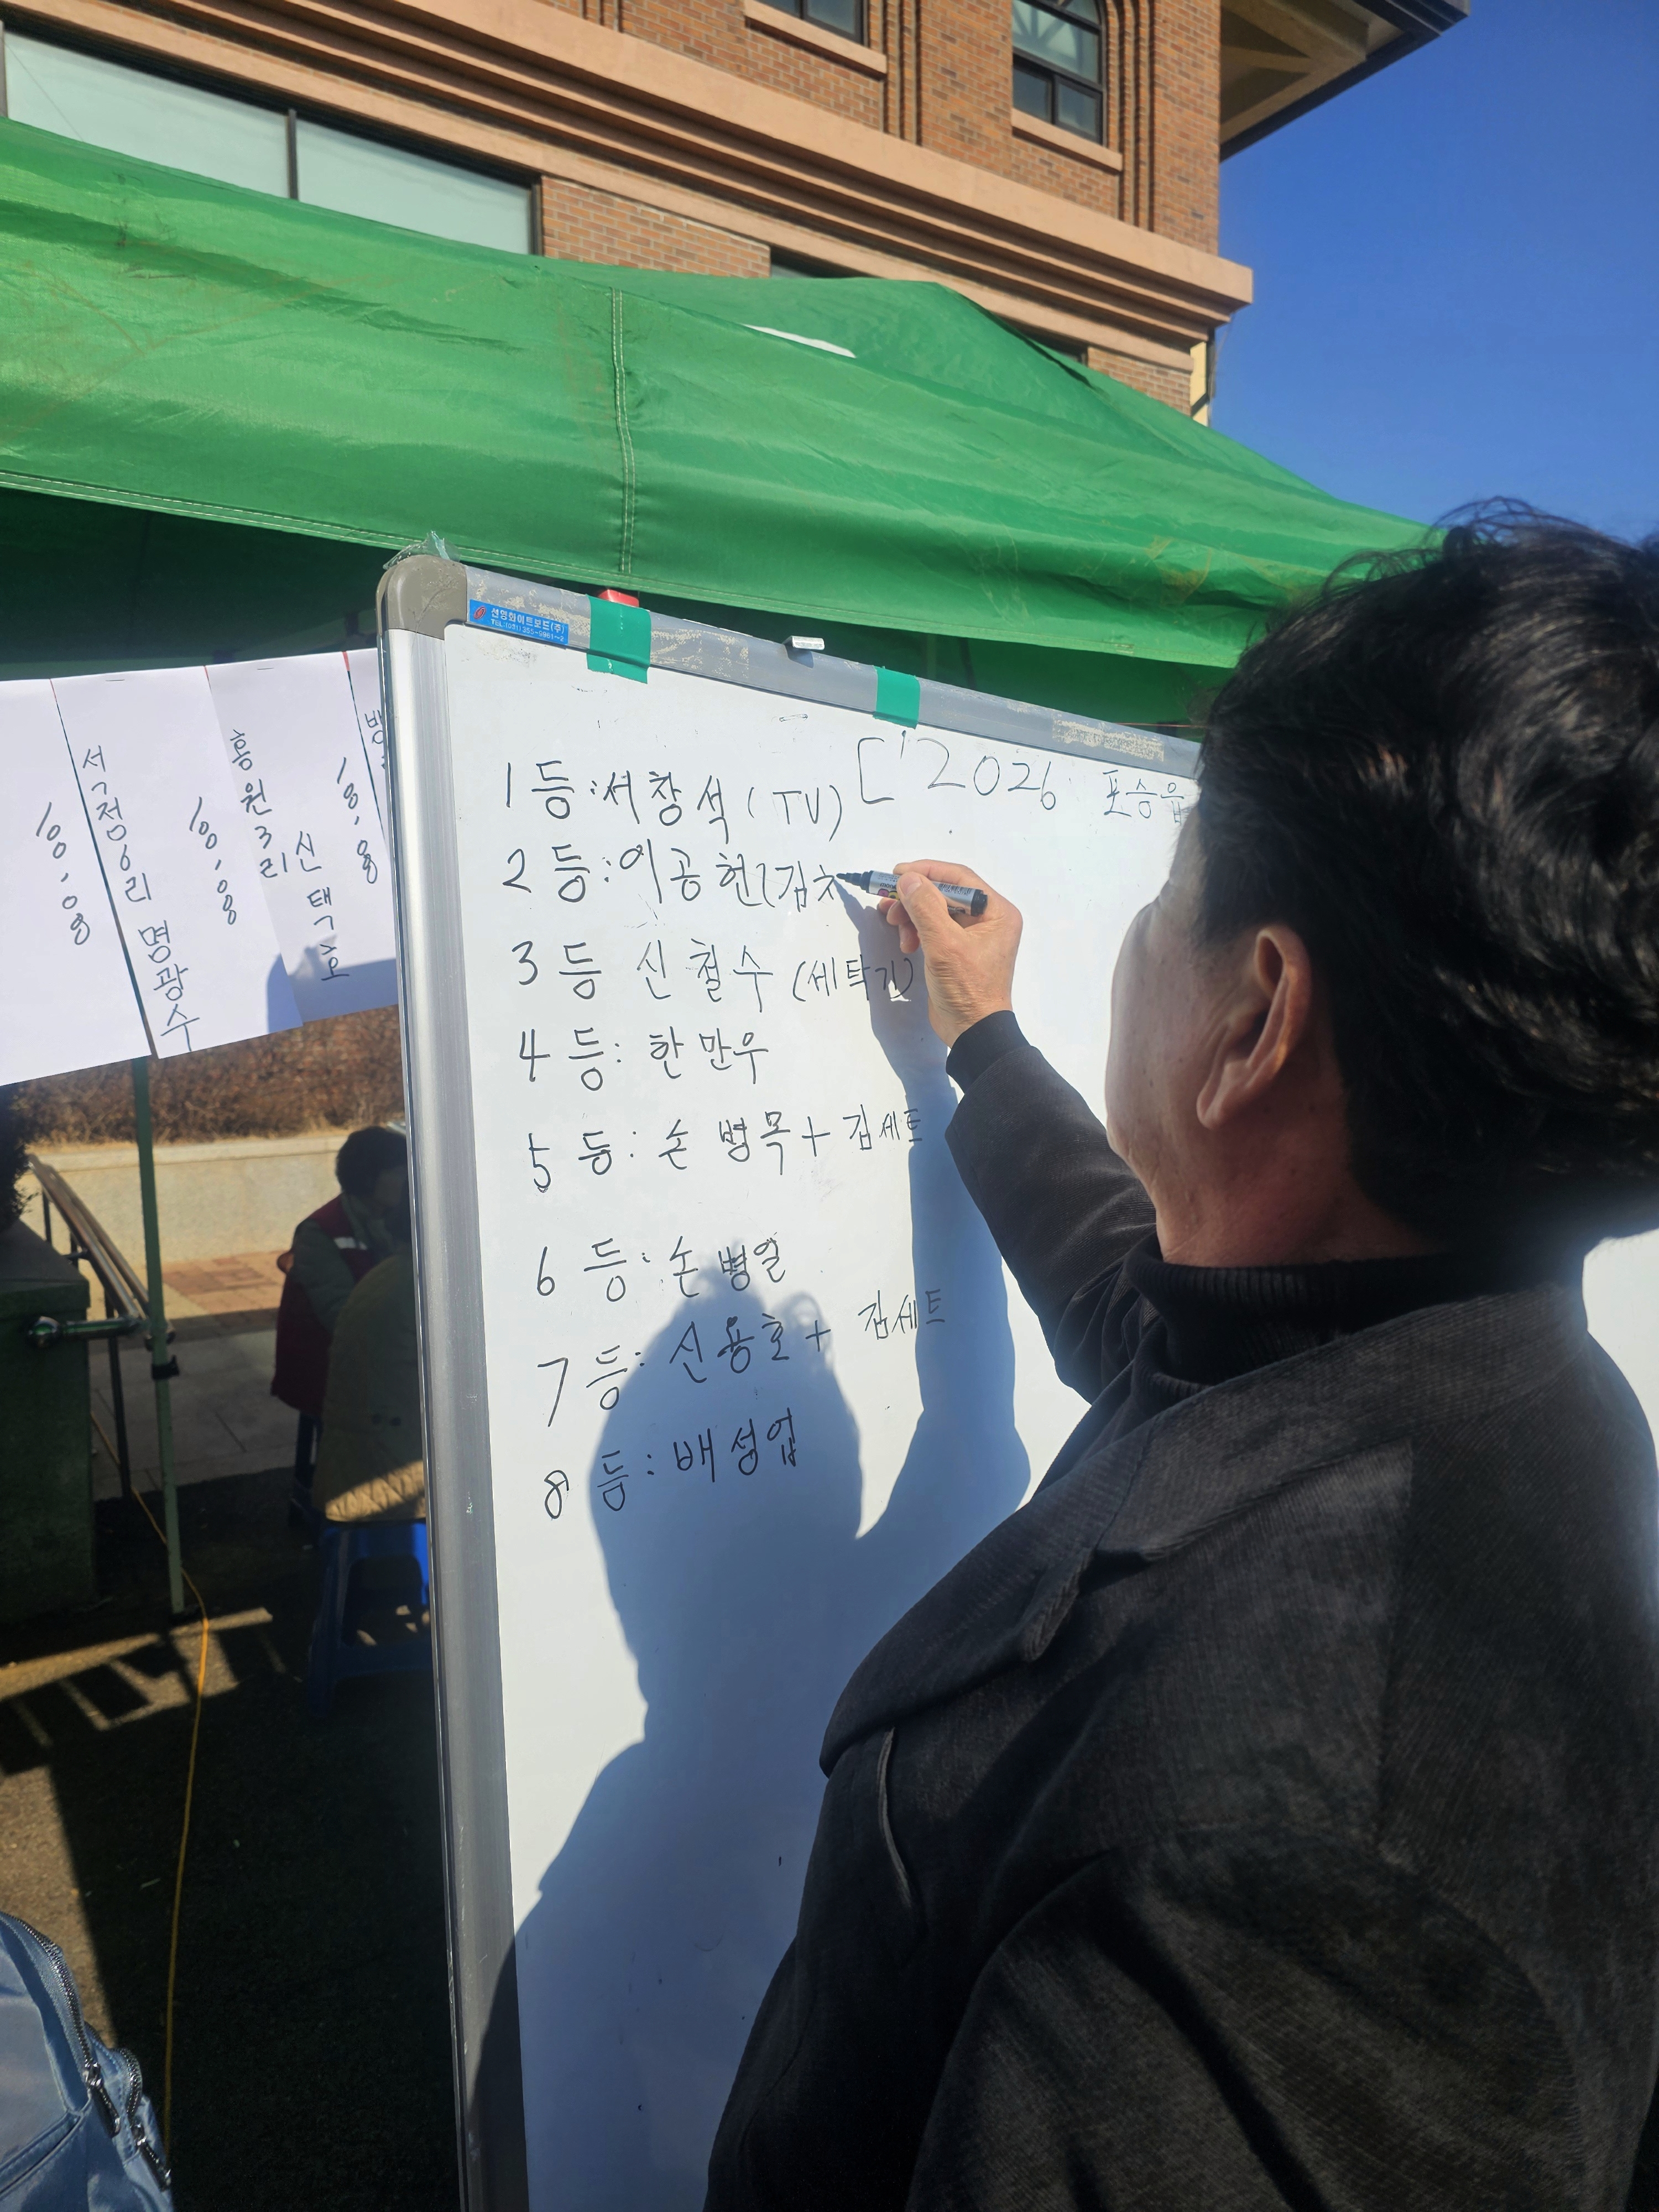 선명화이트보드(주)
['2026 포승읍
1등:서창석(TV)
2등:이공헌(김치
3등 신철수 (세탁기)
4등: 한만우
5등: 손병목+김세트
6등: 손병열
7등: 신용호+ 김세트
8등: 배성업
석정6리 명광수
홍원3리 신택호